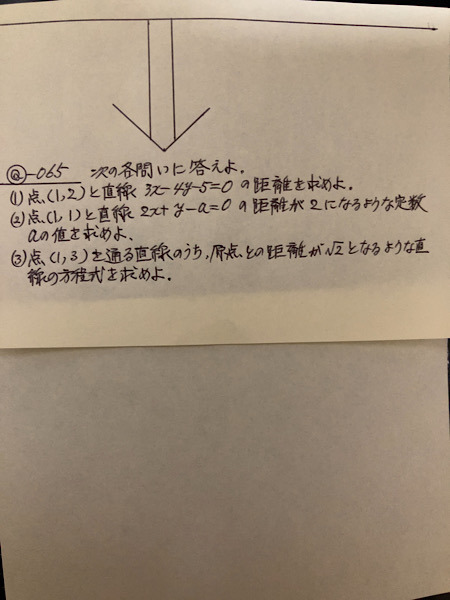 Q-065 次の各問いに答えよ.
(1)点(1,2)と直線 3x-4y-5=0 の距離を求めよ.
(2)点(1,1)と直線 2x+y-a=0 の距離が2になるような定数
aの値を求めよ.
(3)点(1,3)を通る直線のうち,原点との距離が√2となるような直
線の方程式を求めよ.